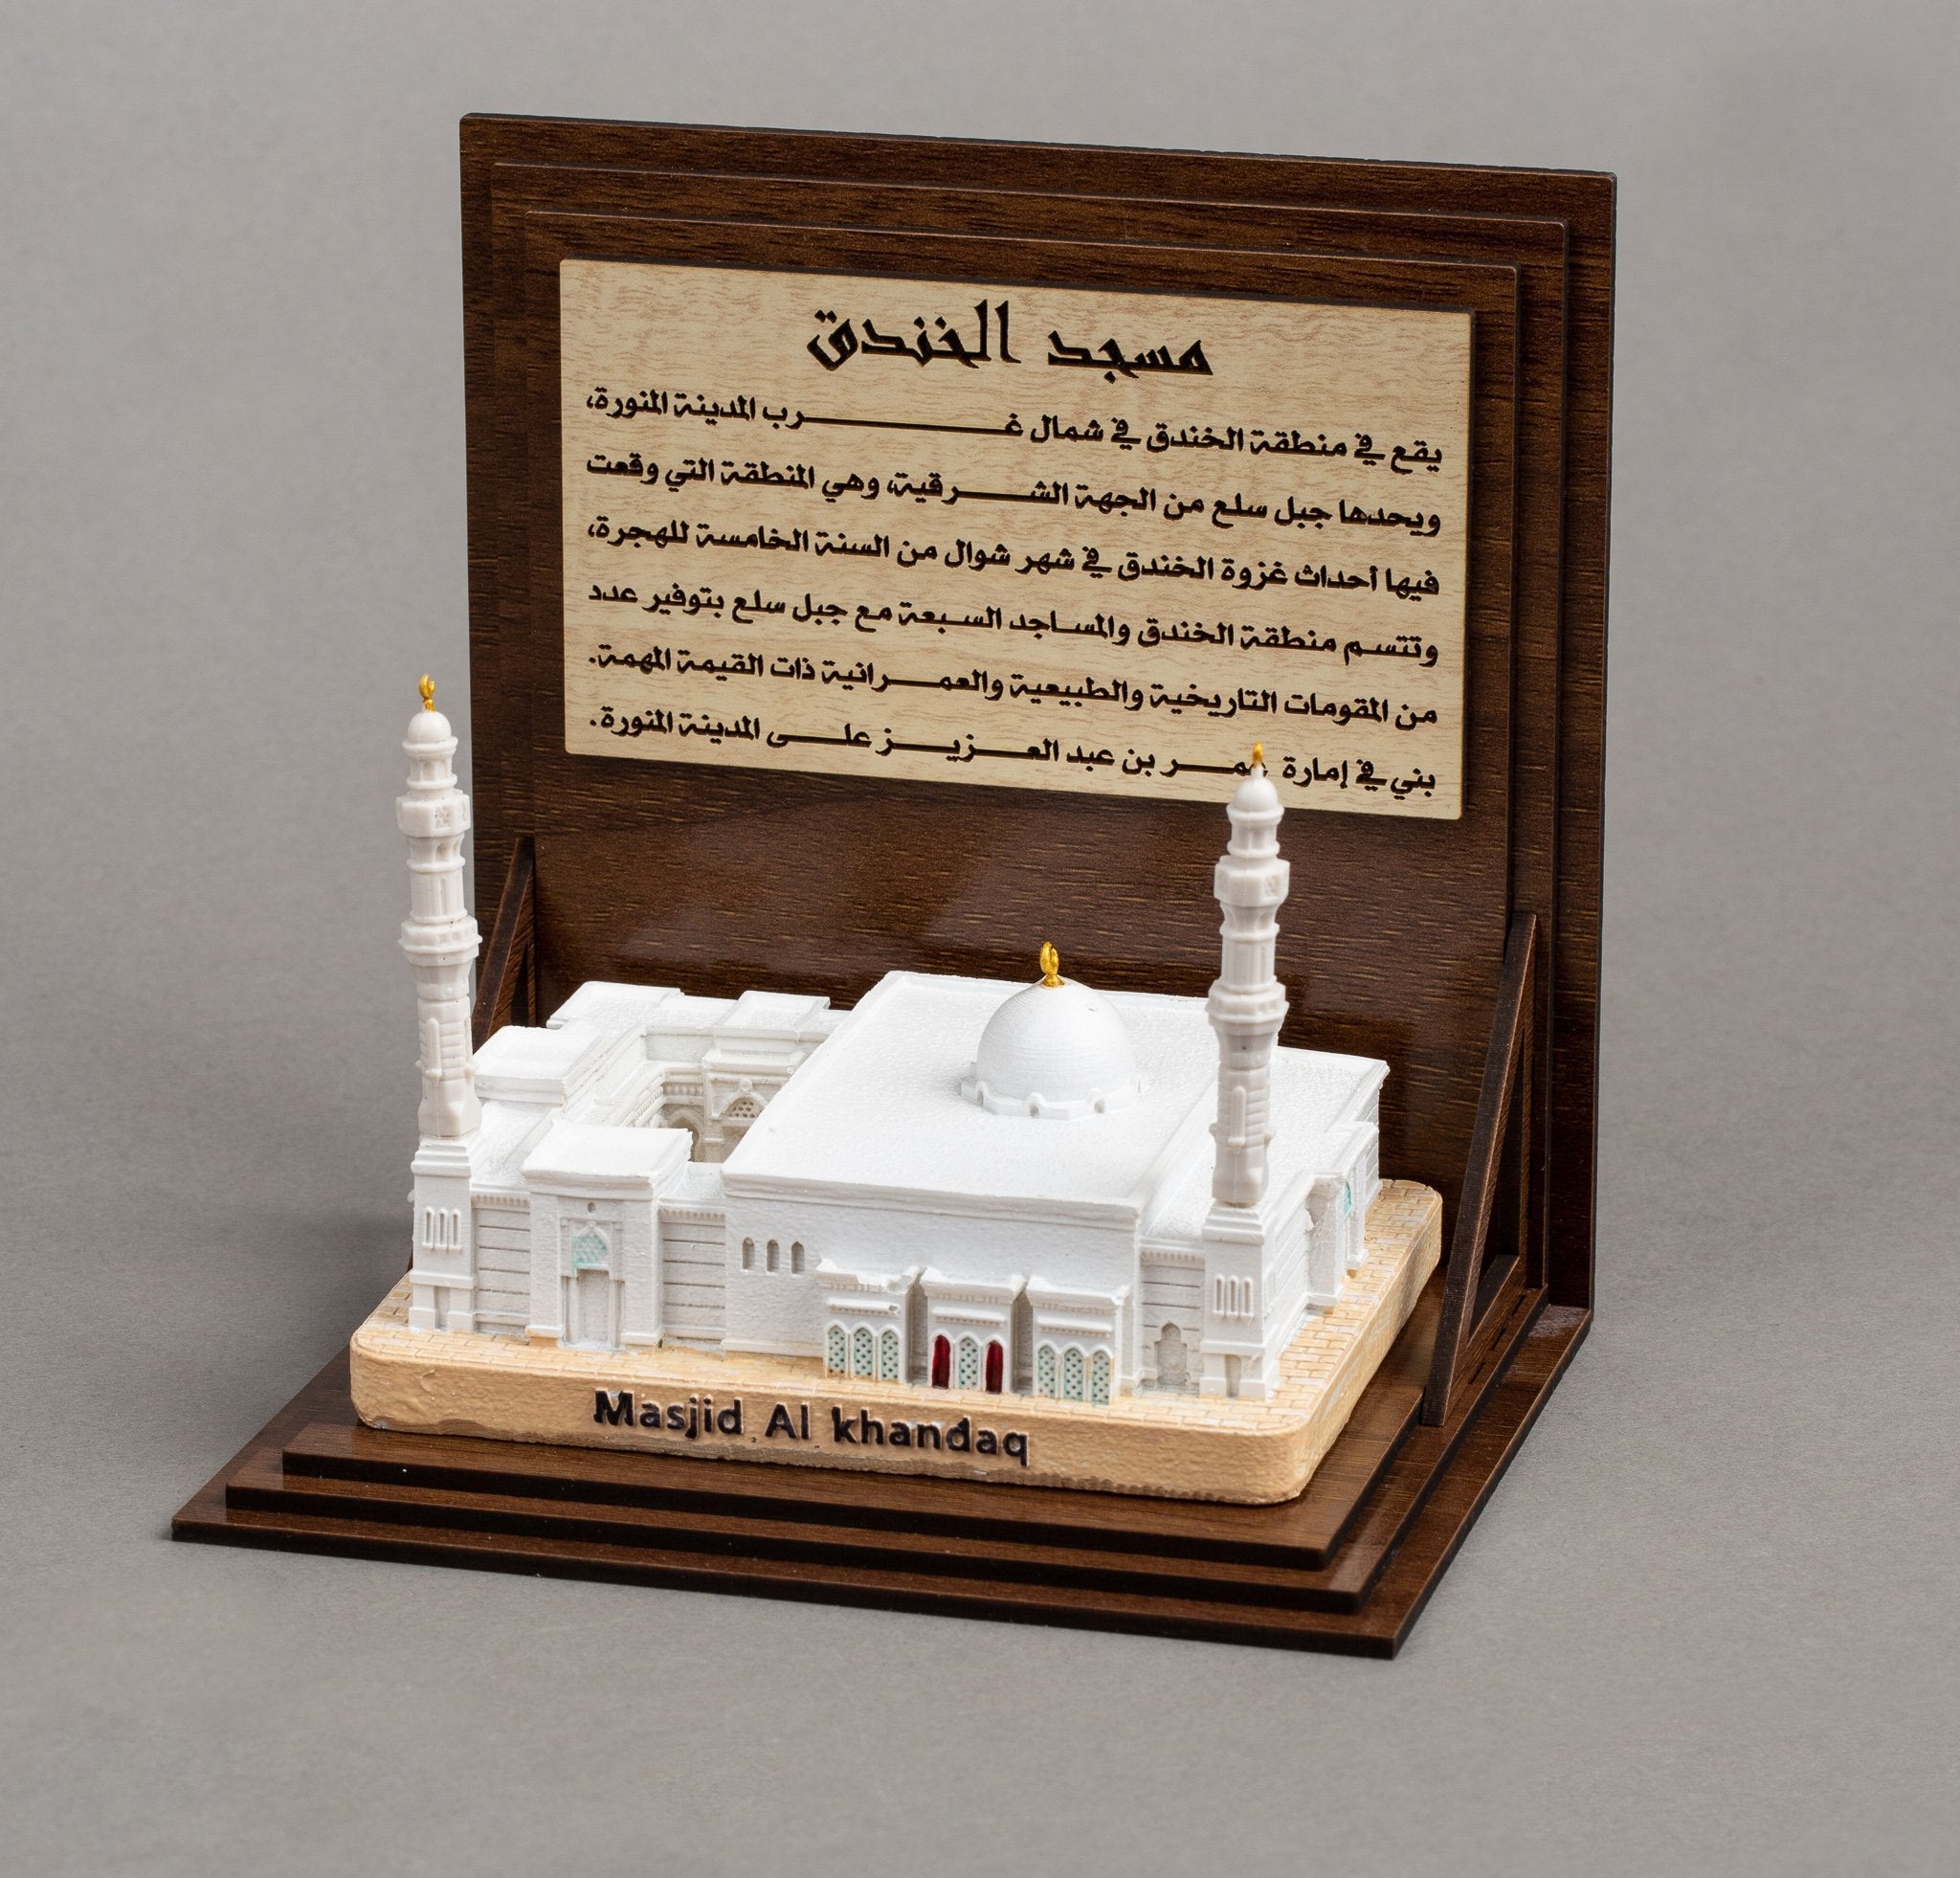 مسجد الخندق
يقع في منطقة الخندق في شمال غرب المدينة المنورة،
ويحدها جبل سلع من الجهة الشرقية، وهي المنطقة التي وقعت
فيها أحداث غزوة الخندق في شهر شوال من السنة الخامسة للهجرة،
وتتسم منطقة الخندق والمساجد السبعة مع جبل سلع بتوفير عدد
من المقومات التاريخية والطبيعية والعمرانية ذات القيمة المهمة.
بني في إمارة عمر بن عبد العزيز على المدينة المنورة.
Masjid Al khandaq